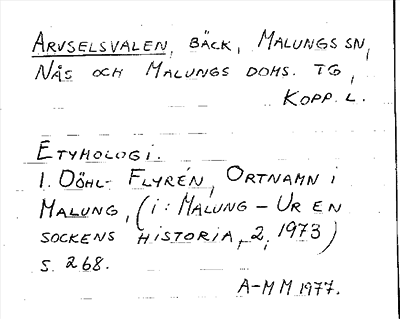 ARVSELSVALEN, BÄCK, MALUNGS SN,
NÅS OCH MALUNGS DOMS. TG,
KOPP. L.
ETYMOLOGI.
I. DÖHL- FLYRÉN, ORTNAMN I
MALUNG, (I: MALUNG - UR EN
SOCKENS HISTORIA, 2, 1973)
S. 268.
A-MM 1977.